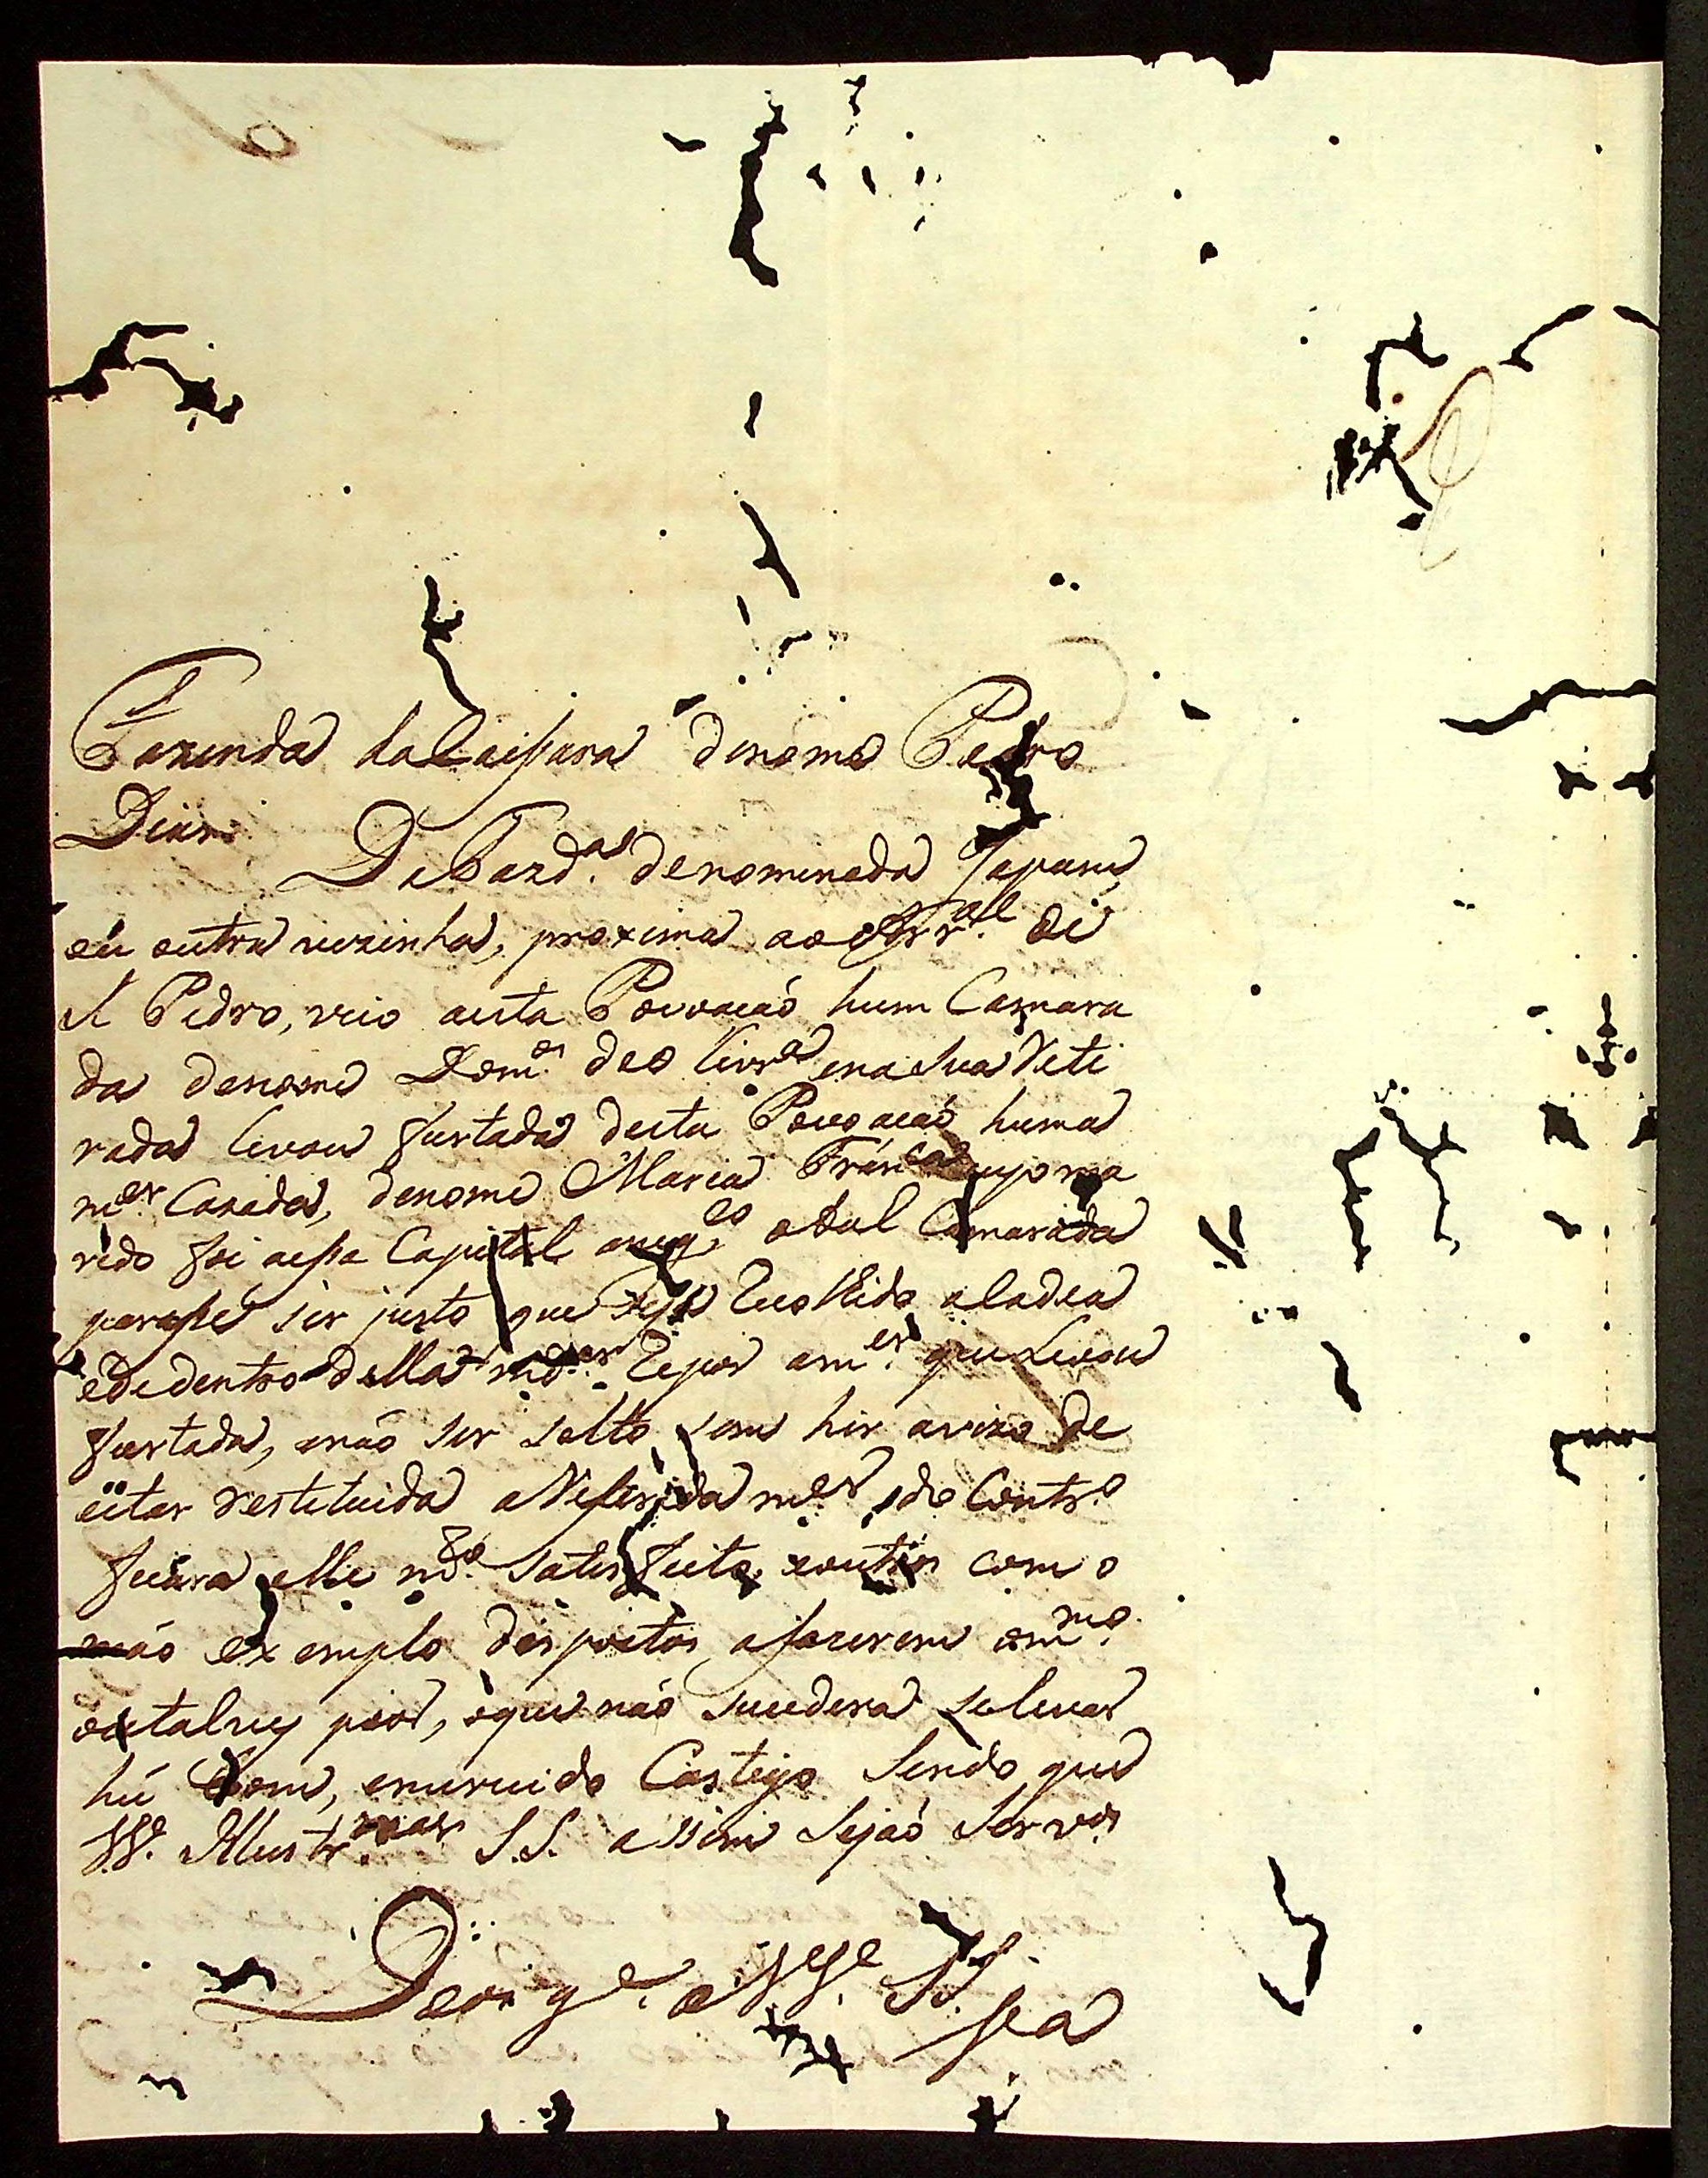 Fazenda da Caissara denome Pedro
Dias.
Da Fazd.ª denominada Japam
ou outra vezinha, proxima ao Arr.al de
S Pedro, veio aesta Povoacaó hum Camara
da denome Dom.os de Olivr.ª ena sua Reti
rada levou furtada desta Povoacaó huma
m.er Cazada, denome Maria Fran.ca cujo ma
rido foi aessa Capital o tal Camarada
paresse ser justo que seja Recolhido aCadea
ededentro della m.dar Repor am.er que Levou
furtada, enaó ser solto sem hir avizo de
estar restetuida aReferida m.er, do Contr.º
ficára elle m.to satisfeito, eoutros com o
máo exemplo despostos afazerem om.mo
outalves pior, oque naó sucederá selevar
hú bom, emerecido Castigo Sendo que
VV. Illustr.mas S.S. assim Sejaó Servos
Deos g.e a VV. SS.